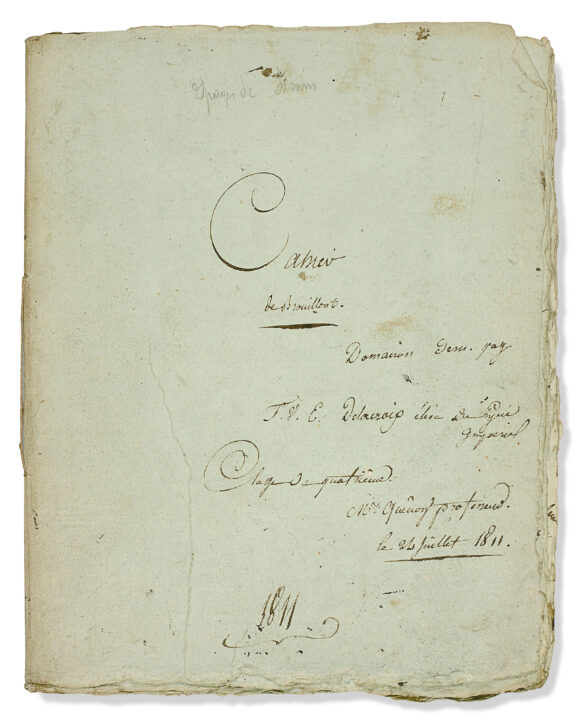 Cahier
de Brouillons.
F. V. E. Delacroix élève du Lycée
Impérial
Classe de quatrième.
Mr. professeur.
le 24 Juillet 1811.
1811